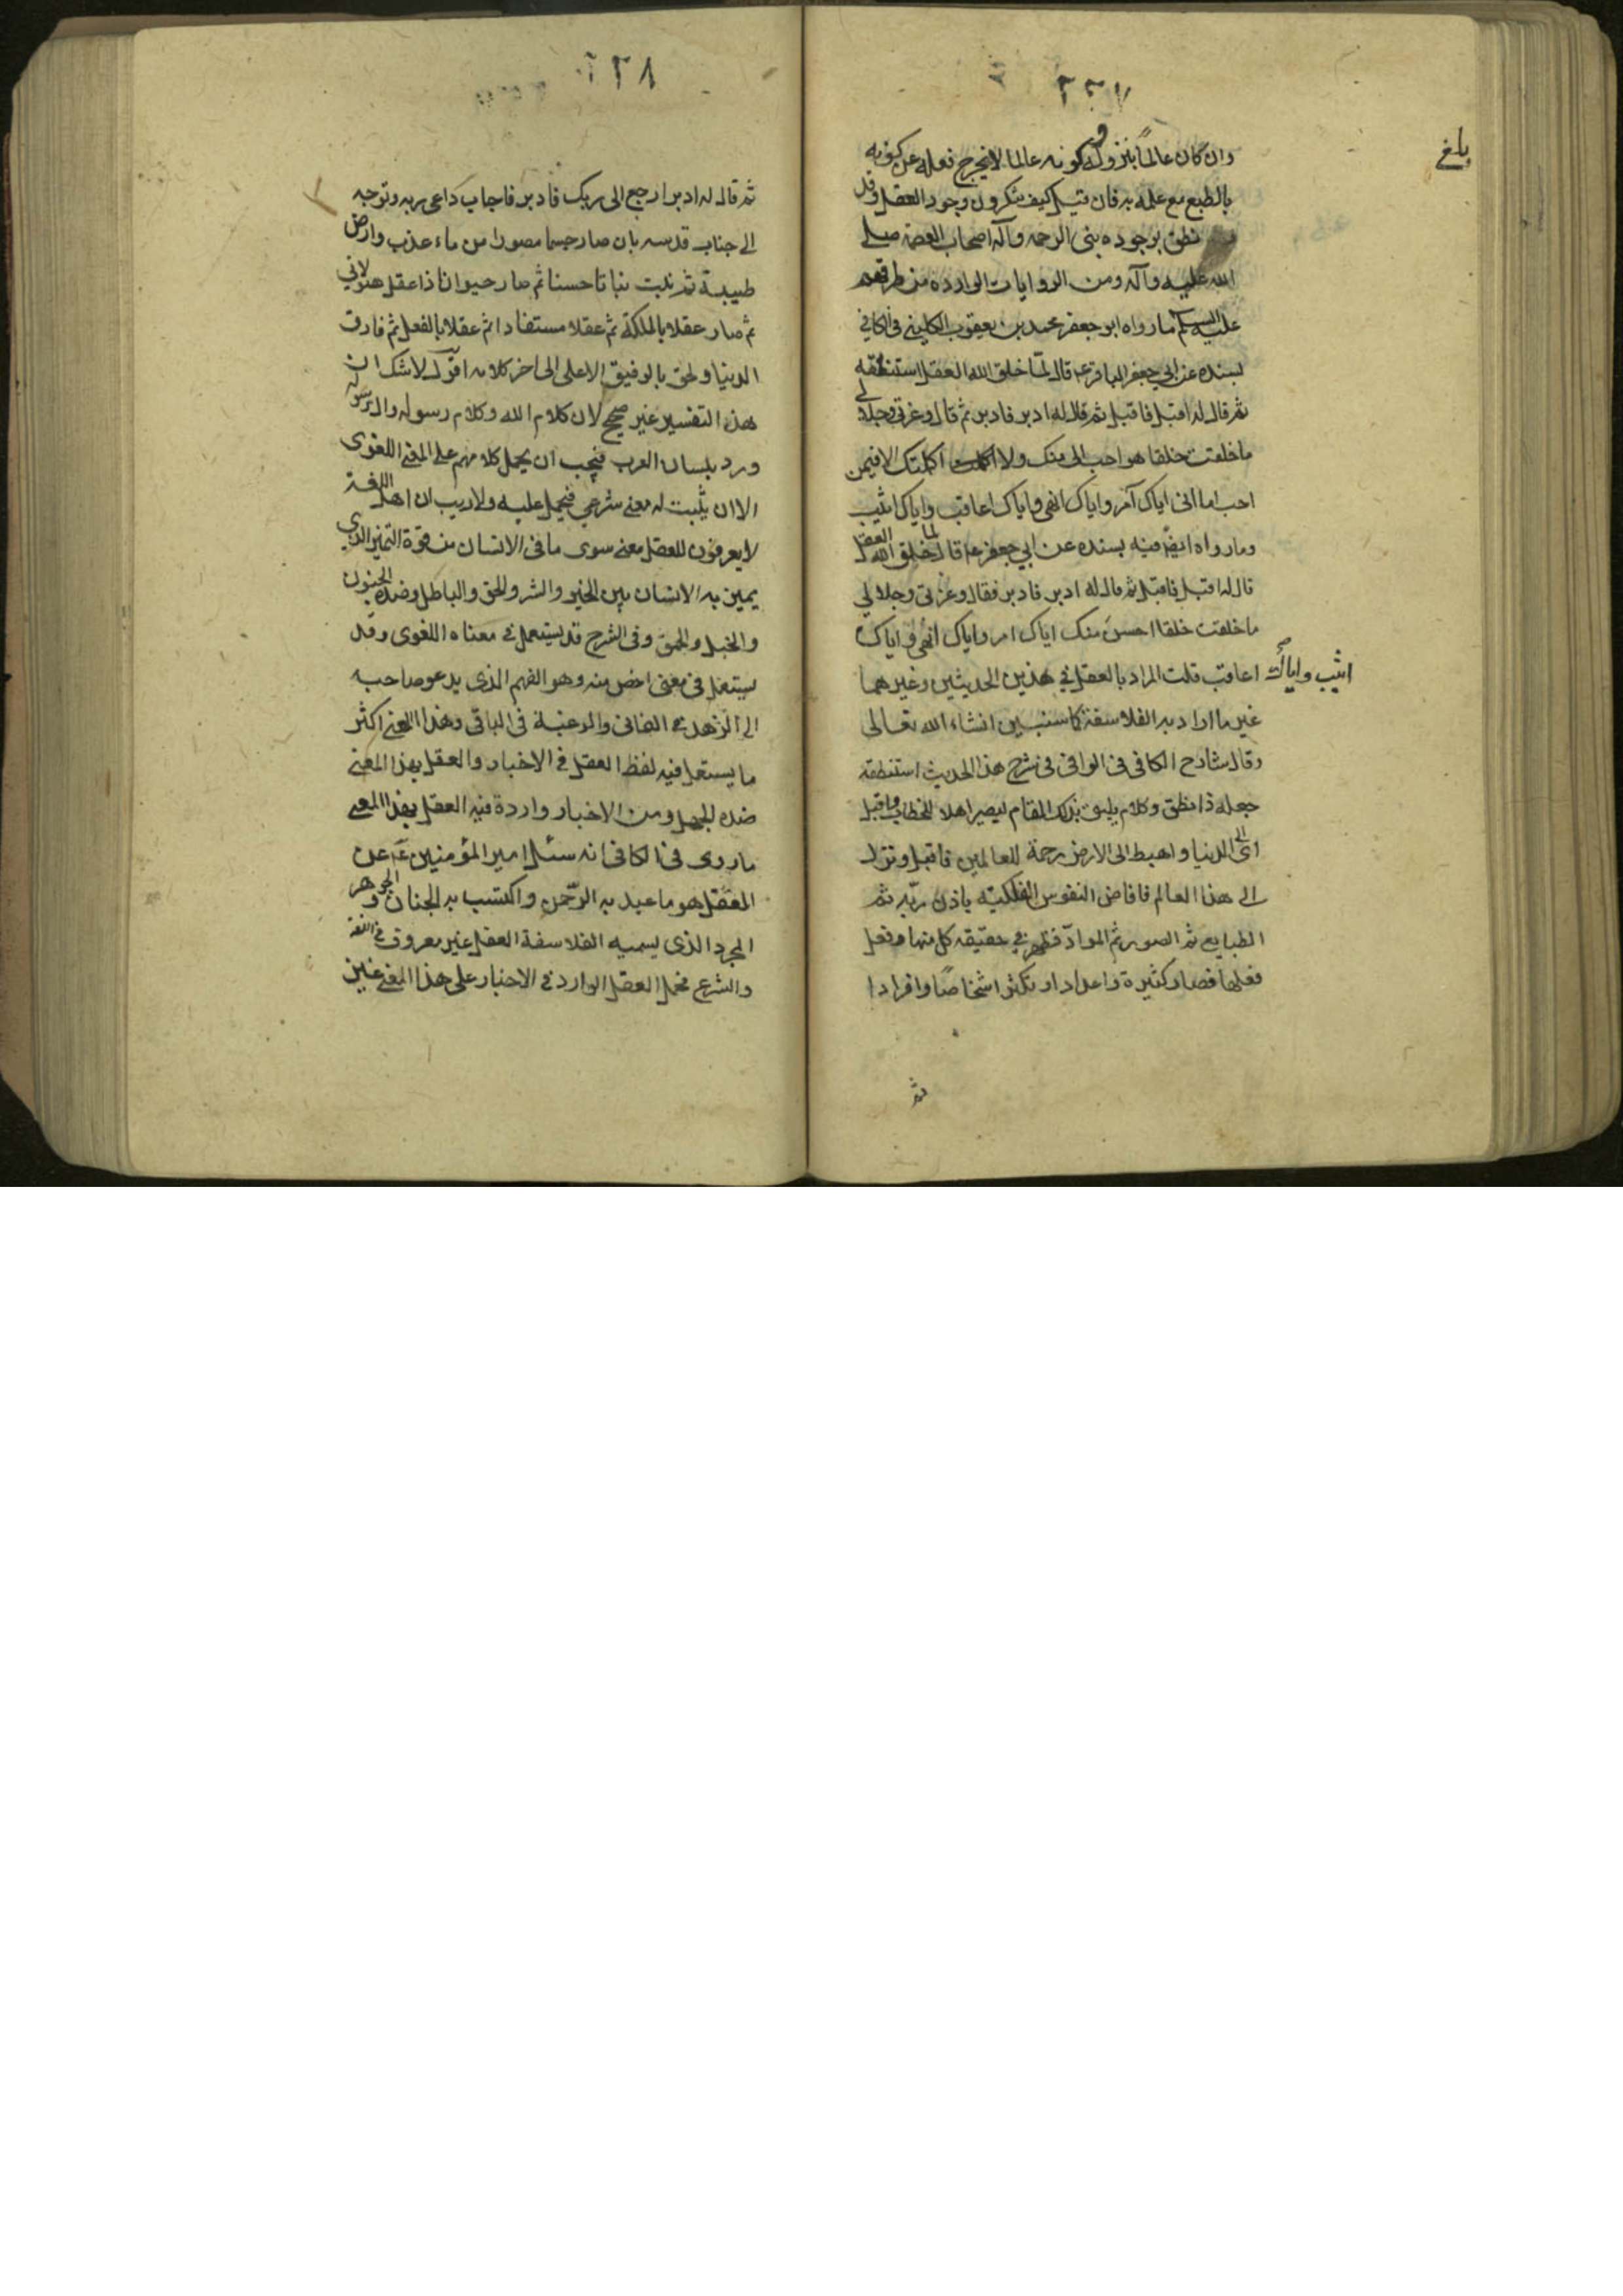 ٢٢٧
بلغ
وان كان عالماً بنزوله وكونه عالما لا يخرج فعله عن كونه
بالطبع مع علمه به فان قيل كيف تنكرون وجود العقل وقد
نطق بوجوده نبي الرحمة وآله اصحاب العصمة صلى
الله عليه وآله ومن الروايات الواردة من طرقهم
عليه السلام ما رواه ابو جعفر محمد بن يعقوب الكليني في الكافي
بسنده عن ابي جعفر الباقر ع قال لمّا خلق الله العقل استنطقه
ثم قال له اقبل فاقبل ثم قال له ادبر فادبر ثم قال وعزتي وجلالي
ما خلقت خلقا هو احب الى منك ولا اكملتك الا فيمن
احب اما انى اياك آمر واياك انهى واياك اعاقب واياك اثيب
وما رواه ايضً فيه بسنده عن ابي جعفر ع قال لما خلق الله العقل
قال له اقبل فاقبل ثم قال له ادبر فادبر فقال وعزتي وجلالي
ما خلقت خلقا احسن منك اياك امر واياك انهى واياك
اثيب واياك اعاقب قلت المراد بالعقل في هذين الحديثين وغيرهما
غير ما اراد به الفلاسفة كما سنبين انشاء الله تعالى
وقال شارح الكافى فى الوافى فى شرح هذا الحديث استنطقه
جعله ذا نطق وكلام يليق بذلك المقام ليصير اهلا للخطاب واقبل
اي الى الدنيا واهبط الى الارض رحمة للعالمين فاقبل ونزل
الى هذا العالم فافاض النفوس الفلكية باذن ربّه ثم
الطبايع ثم الصور ثم الموادّ فظهر في حقيقة كل منها وفعل
فعلها فصار كثيرة واعدادا وتكثر اشخاصًا وافرادا
ثم
٢٢٨
ثم قال له ادبر ارجع الى ربك فادبر فاجاب داعى ربه وتوجه
الى جناب قدسه بان صار جسما مصورا من ماء عذب وارض
طيبة ثم نبت نباتا حسنا ثم صار حيوانا ذا عقل هيولاني
ثم صار عقلا بالملكة ثم عقلا مستفادا ثم عقلا بالفعل ثم فارق
الدنيا ولحق بالرفيق الاعلى الى اخر كلامه اقول لا شك ان
هذا التفسير غير صحيح لان كلام الله وكلام رسوله وال رسوله
ورد بلسان العرب فيجب ان يحمل كلامهم على المعنى اللغوى
الا ان يثبت له معنى شرعي فيحمل عليه ولا ريب ان اهل اللغة
لا يعرفون للعقل معنى سوى ما فى الانسان من قوة التميز الذي
يميز به الانسان بين الخير والشر والحق والباطل وضده الجنون
والخبل والحمق وفى الشرع قد يستعمل في معناه اللغوى وقد
يستعمل فى معنى اخص منه وهو الفهم الذى يدعو صاحبه
الى الزهد في الفانى والرغبة فى الباقى وهذا المعنى اكثر
ما يستعمل فيه لفظ العقل في الاخبار والعقل بهذا المعنى
ضده الجهل ومن الاخبار واردة فيه العقل بهذا المعنى
ما روى فى الكافى انه سئل امير المؤمنين ع عن
العقل هو ما عبد به الرّحمن واكتسب به الجنان والجوهر
المجرد الذى يسميه الفلاسفة العقل غير معروف في اللغة
والشرع فحمل العقل الوارد في الاخبار على هذا المعنى غير